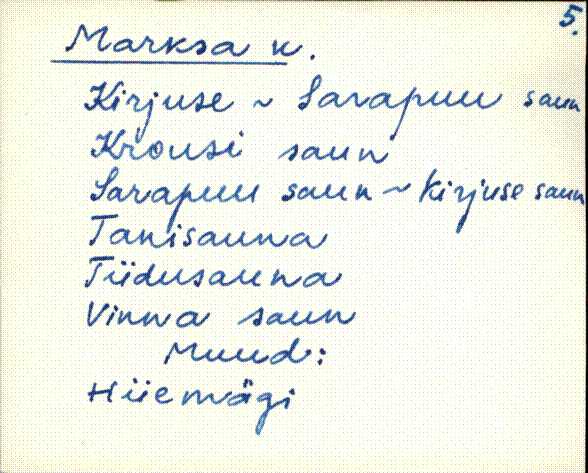 5.
Marksa k.
Kirjuse ~ Sarapuu saun
Krousi saun
Sarapuu saun ~ Kirjuse saun
Tanisauna
Tiidusauna
Vinna saun
Muud:
Hiiemägi